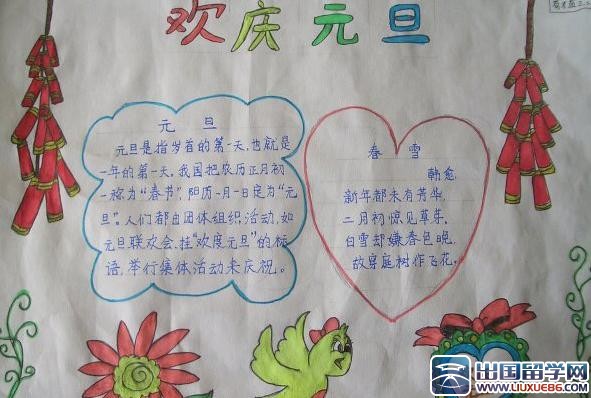 欢庆元旦
元旦
元旦是指岁首的第一天,也就是
一年的第一天,我国把农历正月初
一称为“春节”,阳历一月一日定为“元
旦”。人们都由团体组织活动,如
元旦联欢会,挂“欢度元旦”的标
语,举行集体活动来庆祝。
春雪
韩愈
新年都未有芳华,
二月初惊见草芽。
白雪却嫌春色晚,
故穿庭树作飞花。
出国留学网
WWW.LIUXUE86.COM